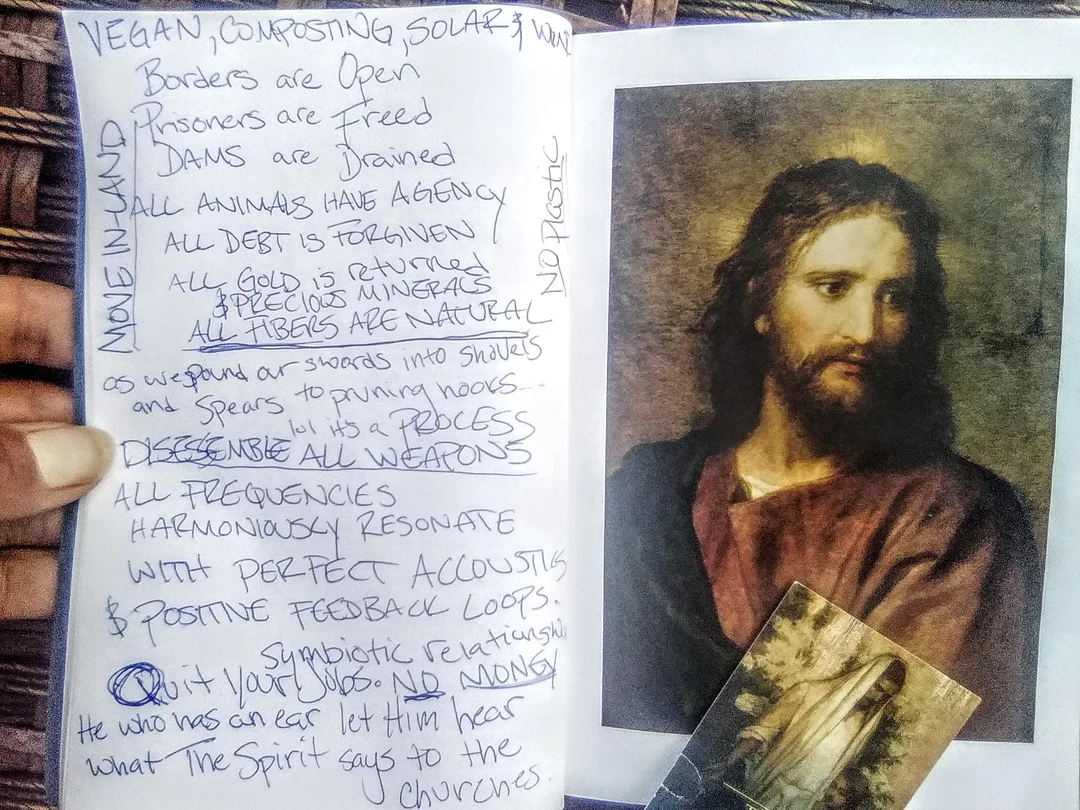 VEGAN, COMPOSTING, SOLAR & WIND
Borders are Open
Prisoners are Freed
DAMS are Drained
ALL ANIMALS HAVE AGENCY
ALL DEBT IS FORGIVEN
ALL GOLD is returned
& PRECIOUS MINERALS
ALL FIBERS ARE NATURAL
MOVE IN-LAND
NO PLASTIC
as we pound our swords into shovels
and spears to pruning hooks...
lol it's a PROCESS
DISESSEMBLE ALL WEAPONS
ALL FREQUENCIES
HARMONIOUSLY RESONATE
WITH PERFECT ACCOUSTICS
& POSITIVE FEEDBACK LOOPS.
symbiotic relationships
Quit Your Jobs. NO MONEY
He who has an ear let Him hear
what The Spirit says to the
churches.